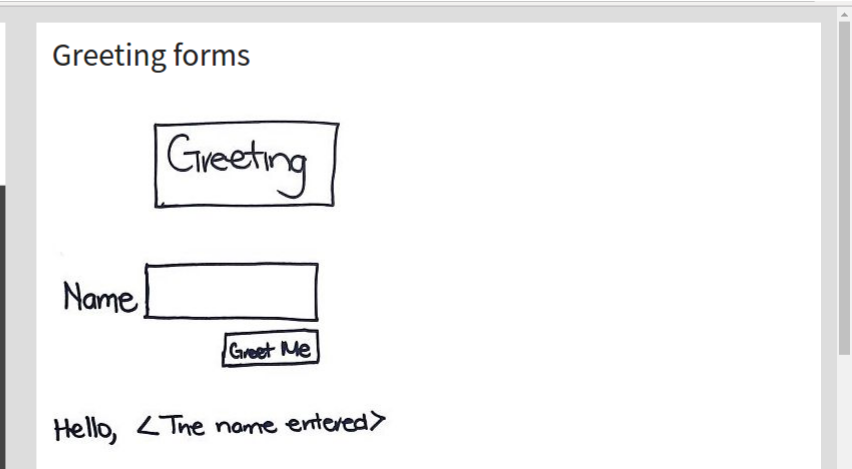 Greeting forms
Greeting
Name
Greet Me
Hello, <The name entered>